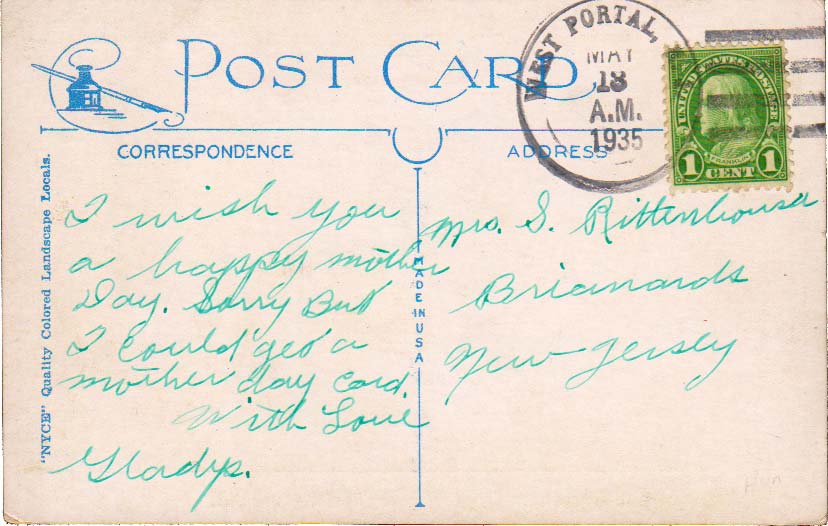 POST CARD
WEST PORTAL,
MAY
13
A.M.
1935
UNITED STATES POSTAGE
FRANKLIN
1 CENT 1
CORRESPONDENCE
ADDRESS
I wish you
a happy mother
Day. Sorry But
I could' get a
mother day card.
With Love
Gladys.
Mrs. S. Rittenhouse
Brianards
New-Jersey
MADE IN USA
"NYCE" Quality Colored Landscape Locals.